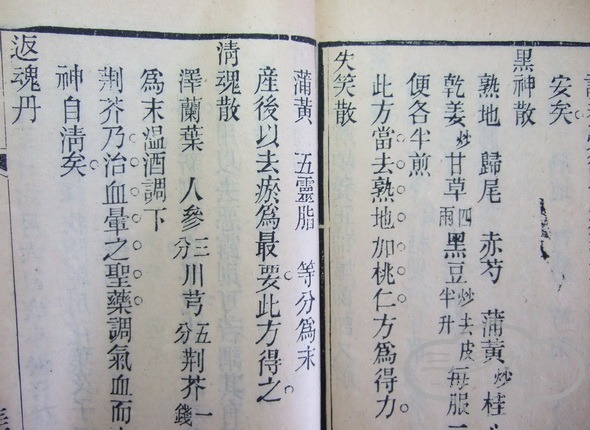 安矣
黑神散
熟地 歸尾 赤芍 蒲黃炒 桂
乾姜炒 甘草四兩 黑豆炒去皮半升 每服
便各半煎
此方當去熟地加桃仁方爲得力
失笑散
蒲黃 五靈脂 等分爲末
產後以去瘀爲最要此方得之
清魂散
澤蘭葉 人參三分 川芎五分 荆芥一錢
爲末温酒調下
荆芥乃治血暈之聖藥調氣血而
神自清矣
返魂丹